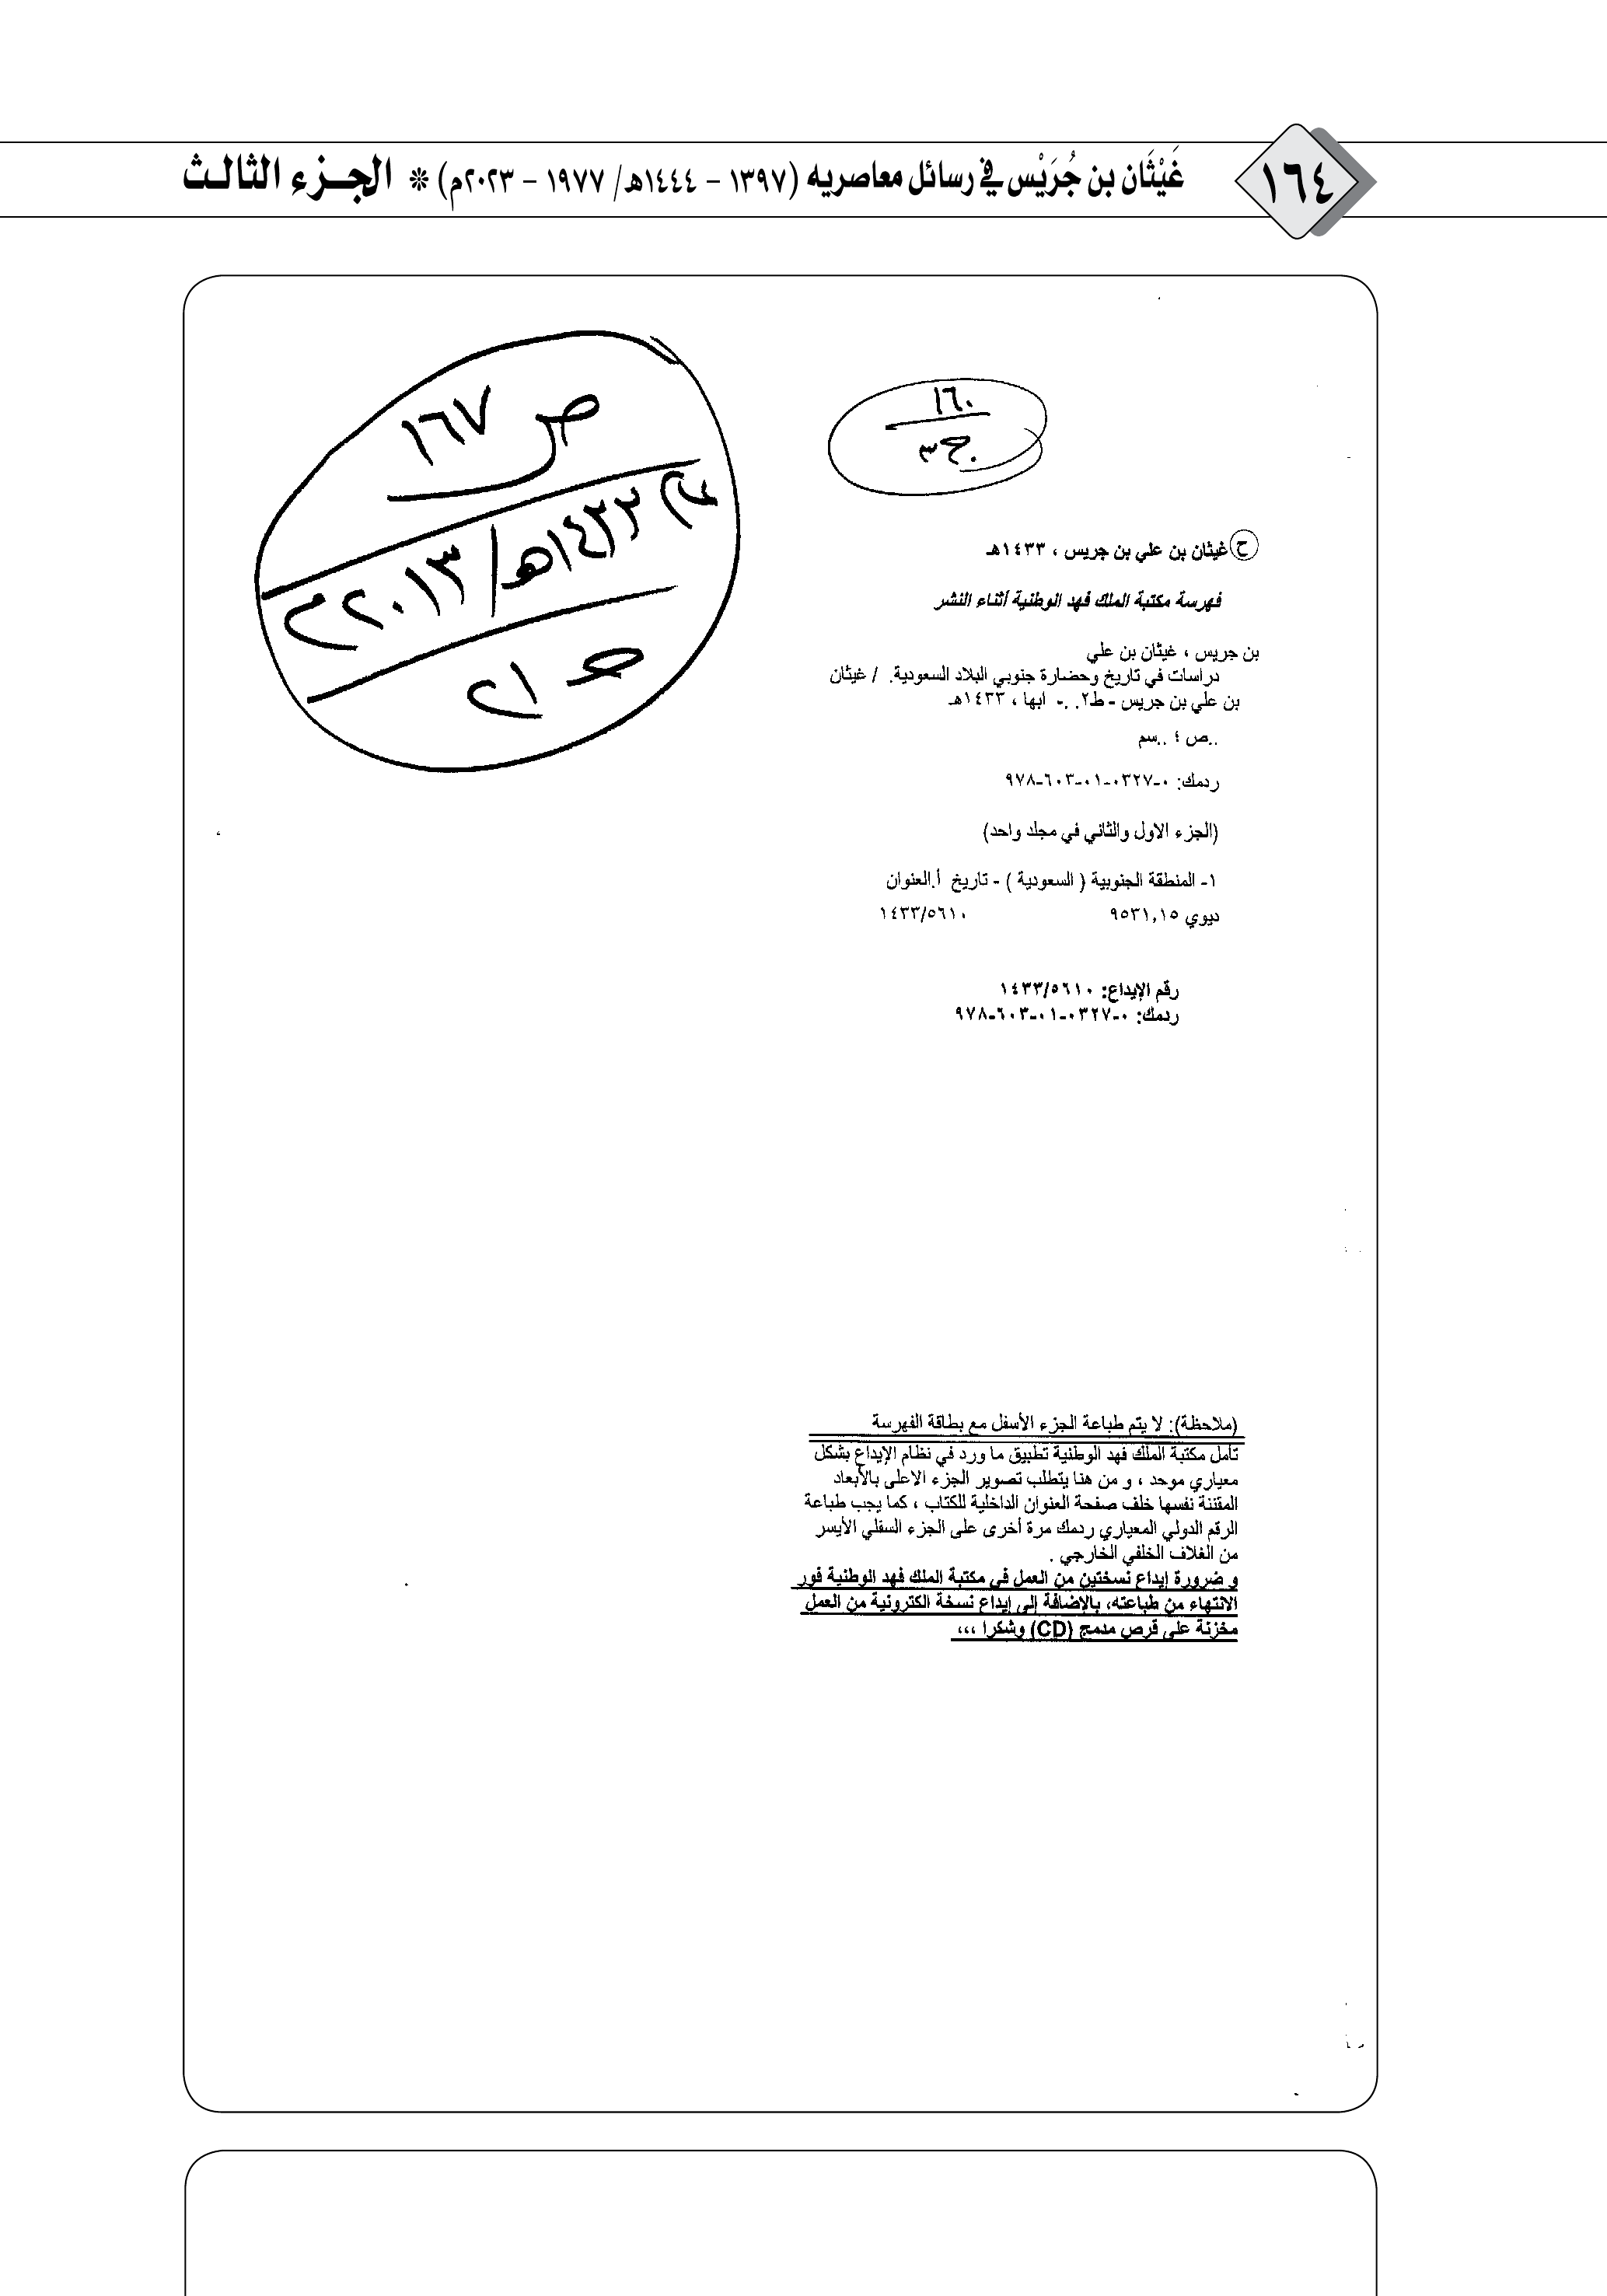 ١٦٤
غَيْثَان بن جُرَيْس في رسائل معاصريه (١٣٩٧ - ١٤٤٤هـ/ ١٩٧٧ - ٢٠٢٣م) * الجـزء الثالـث
١٦٠
ج٣
ص ١٦٧
١٤٣٣هـ/٢٠١٣م
ح غيثان بن علي بن جريس ، ١٤٣٣هـ
فهرسة مكتبة الملك فهد الوطنية أثناء النشر
بن جريس ، غيثان بن علي
دراسات في تاريخ وحضارة جنوبي البلاد السعودية. / غيثان
بن علي بن جريس - ط٢. .- ابها ، ١٤٣٣هـ
..ص ؛ ..سم
ردمك: ٠-٠٣٢٧-٠١-٦٠٣-٩٧٨
(الجزء الاول والثاني في مجلد واحد)
١- المنطقة الجنوبية ( السعودية ) - تاريخ أ.العنوان
ديوي ٩٥٣١,١٥ ١٤٣٣/٥٦١٠
رقم الإيداع: ١٤٣٣/٥٦١٠
ردمك: ٠-٠٣٢٧-٠١-٦٠٣-٩٧٨
(ملاحظة): لا يتم طباعة الجزء الأسفل مع بطاقة الفهرسة
تأمل مكتبة الملك فهد الوطنية تطبيق ما ورد في نظام الإيداع بشكل
معياري موحد ، و من هنا يتطلب تصوير الجزء الاعلى بالأبعاد
المقننة نفسها خلف صفحة العنوان الداخلية للكتاب ، كما يجب طباعة
الرقم الدولي المعياري ردمك مرة أخرى على الجزء السفلي الأيسر
من الغلاف الخلفي الخارجي .
و ضرورة إيداع نسختين من العمل في مكتبة الملك فهد الوطنية فور
الانتهاء من طباعته، بالإضافة إلى إيداع نسخة الكترونية من العمل
مخزنة على قرص مدمج (CD) وشكرا ،،،